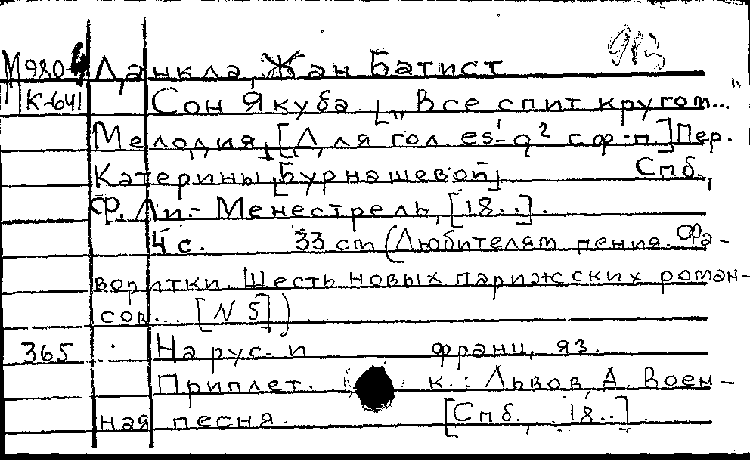 913
М980-4 Данкла, Жан Батист
К-641 Сон Якуба. [„Все спит кругом..."
Мелодия. [Для гол. es¹-g² с ф-п.] Пер.
Катерины [Бурнашевой]. Спб.,
Ф. Ли.- Менестрель, [18..].
4 с. 33 cm (Любителям пения. Фа-
воритки. Шесть новых парижских роман-
сов... [N 5])
365 На рус. и франц. яз.
Приплет. к.: Львов, А. Воен-
ная песня. [Спб., 18..]